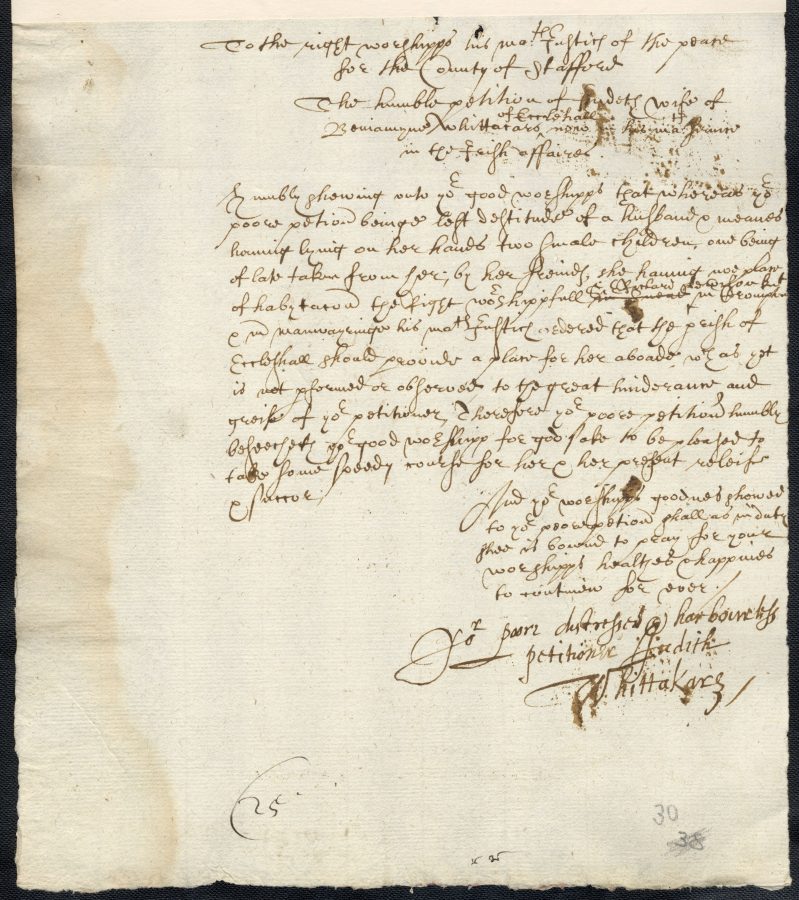 To the right worshipps his ma.ties Justices of the peace
for the County of Stafford
The humble petition of Judeth wife of
Beniamyne Whittacars of Eccleshall now in his ma.ties service
in the Irish affaires
Humbly shewing unto yor good worshipps that whereas yor
poore petion beinge left destitude of a husband & meanes
having lying on her hands two smale children, one being
of late taken from her, by her freinds, she having noe place
of habytacon the Right worshippfull
& mr Manwayringe his ma.ties Justices ordered that the prish of
Eccleshall should provide a place for her aboade, wch as yet
is not pformed or observed to the great hinderance and
greife of yor petitioner, Therefore yor poore petition humbly
beseecheth yor good worshipp for god sake to be pleased to
take some speedy course for her & her present releife
& succor
And yor worshipps goodnes showed
to yor poore petion shall as in duty
shee is bound to pray for your
worshipps healthes & happines
to contineu for ever./
Yor poore distressed & harbourless
petitioner Judith
Whittakars
25
30
38